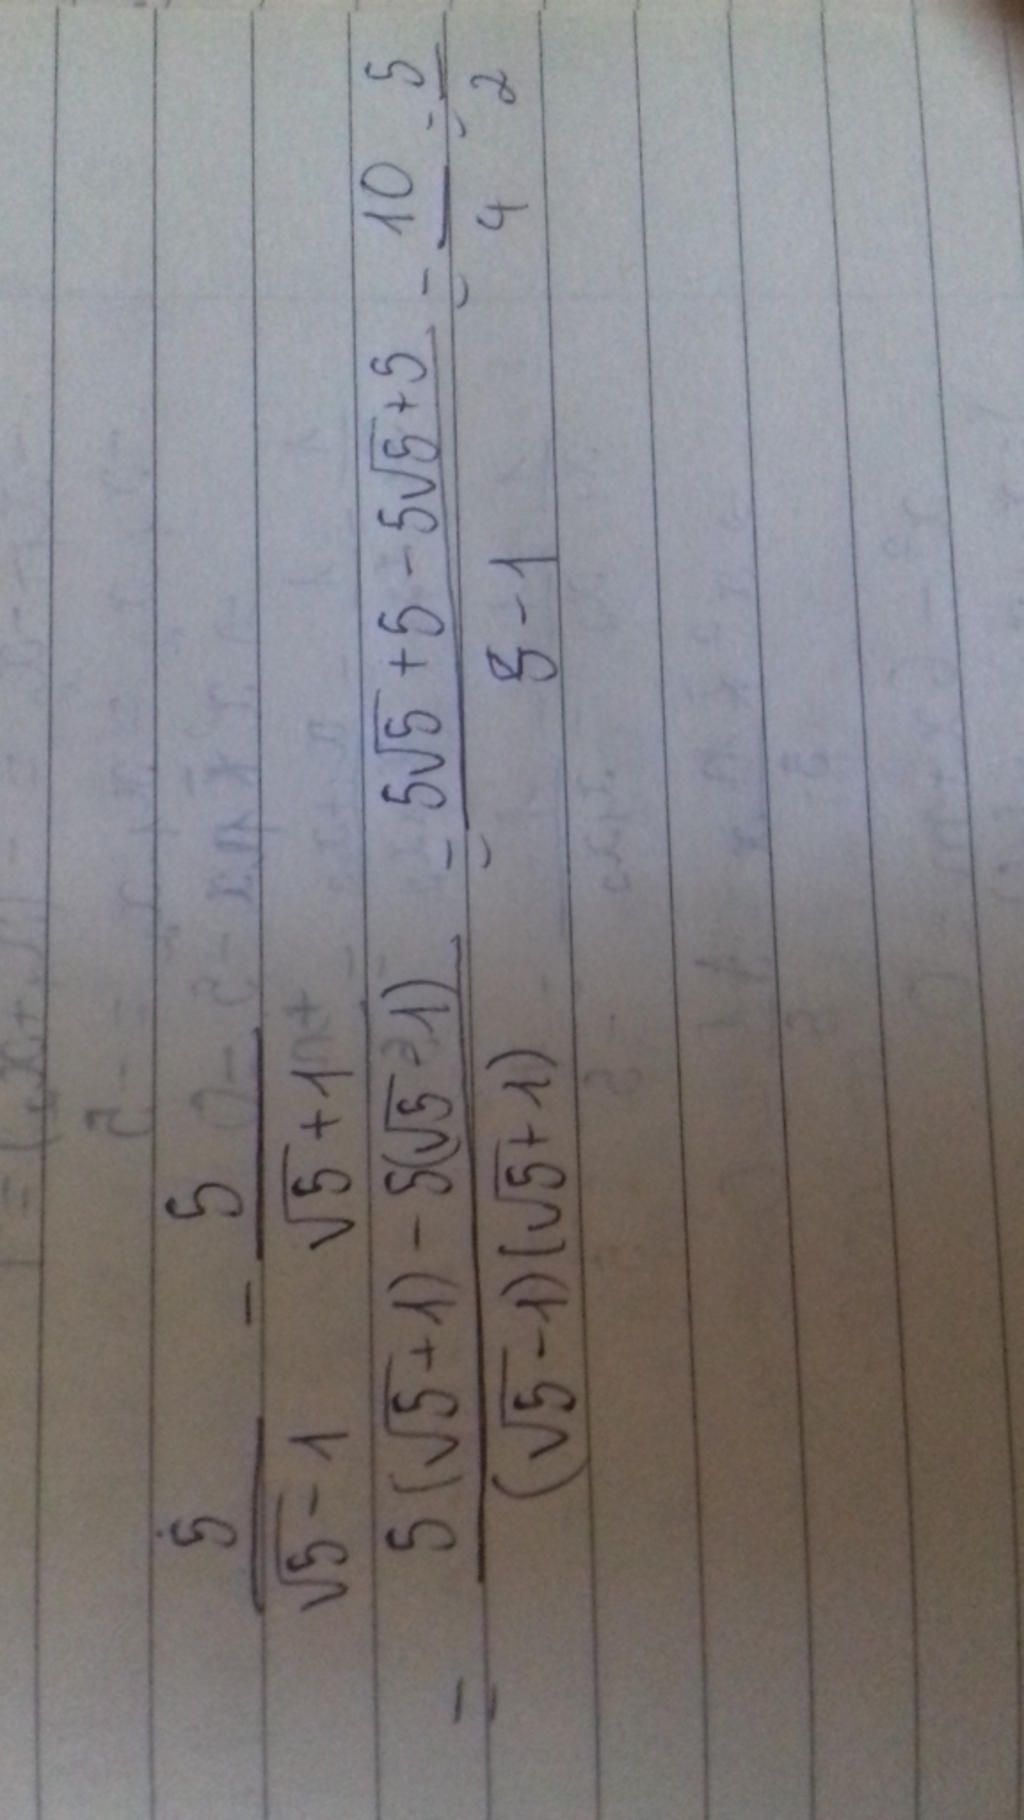 5/(√5-1) - 5/(√5+1)
= (5(√5+1) - 5(√5-1))/((√5-1)(√5+1)) = (5√5+5-5√5+5)/(5-1) = 10/4 = 5/2